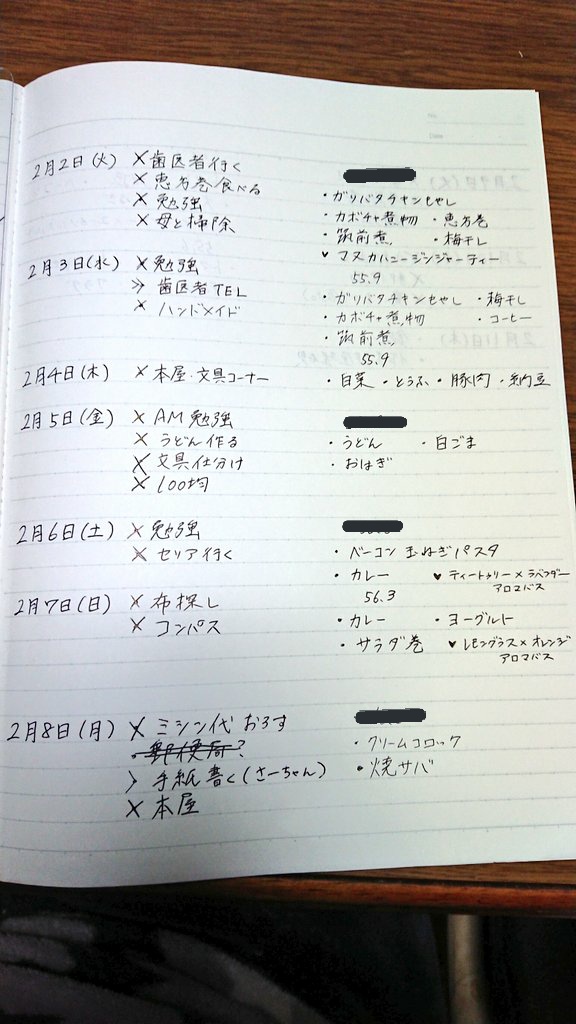 No.
Date
2月2日(火) ×歯医者行く
×恵方巻食べる
×勉強 ・ガリバタチキンもやし
×母と掃除 ・カボチャ煮物 ・恵方巻
・筑前煮 ・梅干し
2月3日(水) ×勉強 ♥マヌカハニージンジャーティー
≫歯医者TEL 55.9
×ハンドメイド ・ガリバタチキンもやし ・梅干し
・カボチャ煮物 ・コーヒー
・筑前煮
55.9
2月4日(木) ×本屋・文具コーナー ・白菜 ・とうふ ・豚肉 ・納豆
2月5日(金) ×AM勉強
×うどん作る ・うどん ・白ごま
×文具仕分け ・おはぎ
×100均
2月6日(土) ×勉強
×セリア行く ・ベーコン玉ねぎパスタ
・カレー ♥ティートゥリー×ラベンダー
アロマバス
2月7日(日) ×布探し 56.3
×コンパス ・カレー ・ヨーグルト
・サラダ巻 ♥レモングラス×オレンジ
アロマバス
2月8日(月) ×ミシン代おろす
・郵便局? ・クリームコロック
>手紙書く(さーちゃん) ・焼サバ
×本屋